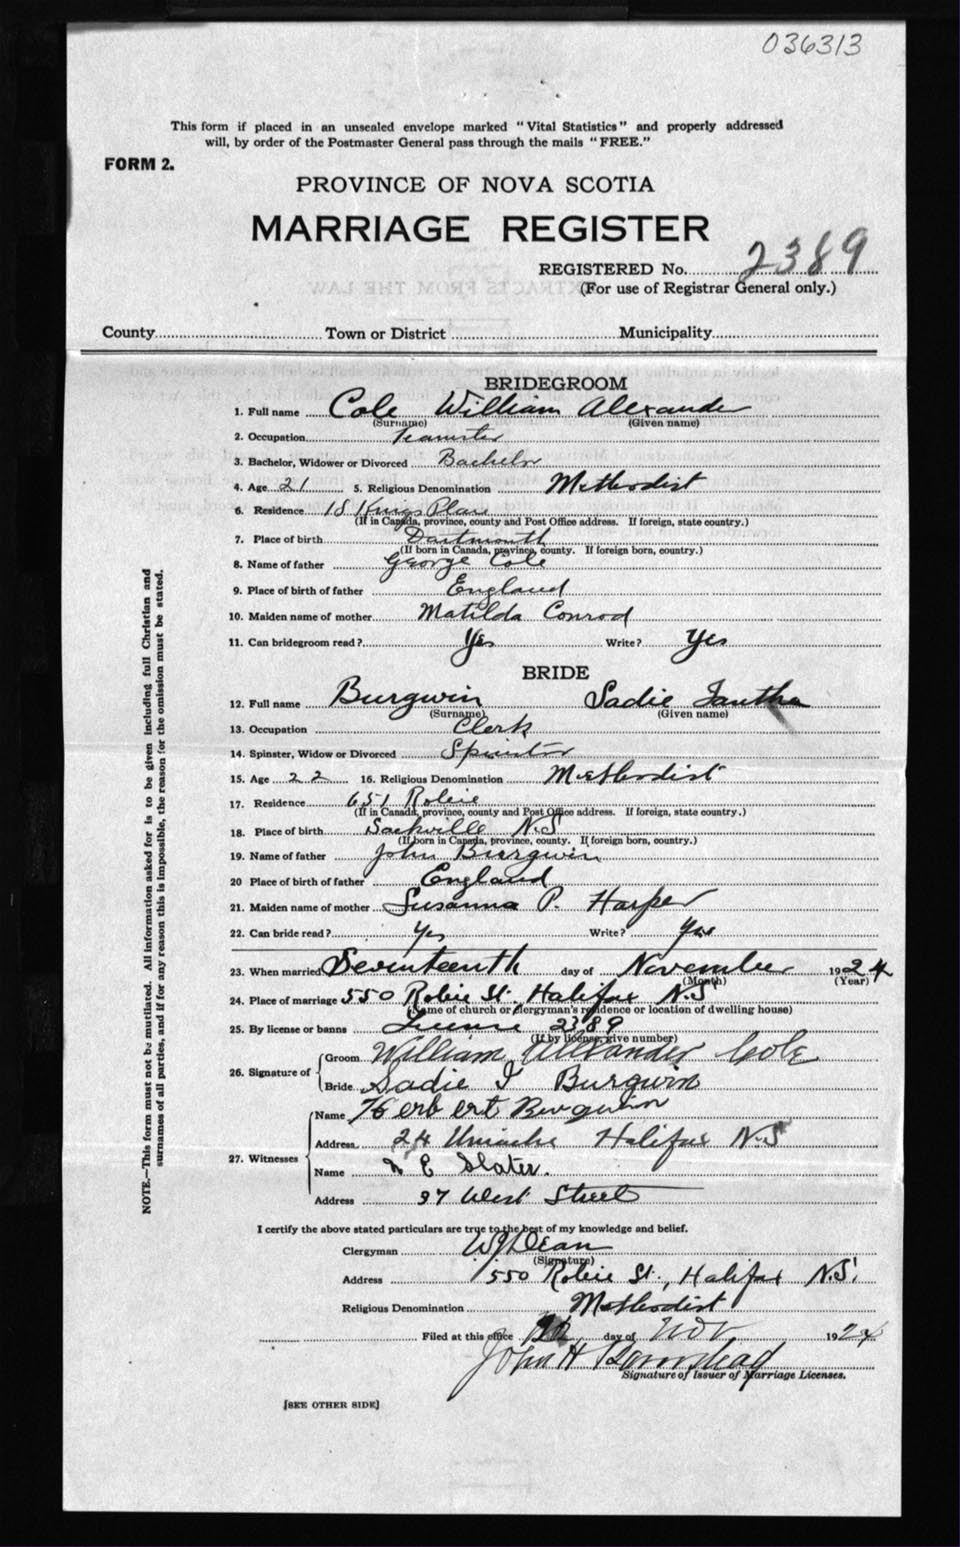 036313
This form if placed in an unsealed envelope marked "Vital Statistics" and properly addressed
will, by order of the Postmaster General pass through the mails "FREE."
FORM 2.
PROVINCE OF NOVA SCOTIA
MARRIAGE REGISTER
REGISTERED No. 2389
(For use of Registrar General only.)
County Town or District Municipality
BRIDEGROOM
1. Full name Cole William Alexander
(Surname) (Given name)
2. Occupation Teamster
3. Bachelor, Widower or Divorced Bachelor
4. Age 21 5. Religious Denomination Methodist
6. Residence 18 Kings Place
(If in Canada, province, county and Post Office address. If foreign, state country.)
7. Place of birth Dartmouth
(If born in Canada, province, county. If foreign born, country.)
8. Name of father George Cole
9. Place of birth of father England
10. Maiden name of mother Matilda Conrod
11. Can bridegroom read? Yes Write? Yes
BRIDE
12. Full name Burgwin Sadie Iantha
(Surname) (Given name)
13. Occupation Clerk
14. Spinster, Widow or Divorced Spinster
15. Age 22 16. Religious Denomination Methodist
17. Residence 651 Robie
(If in Canada, province, county and Post Office address. If foreign, state country.)
18. Place of birth Sackville N.S
(If born in Canada, province, county. If foreign born, country.)
19. Name of father John Burgwin
20 Place of birth of father England
21. Maiden name of mother Susanna P. Harper
22. Can bride read? Yes Write? Yes
23. When married Seventeenth day of November 1924
(Month) (Year)
24. Place of marriage 550 Robie St. Halifax N.S
(Name of church or clergyman's residence or location of dwelling house)
25. By license or banns License 2389
(If by license, give number)
26. Signature of Groom William Alexander Cole
Bride Sadie I Burgwin
27. Witnesses Name Herbert Burgwin
Address 24 Uniacke Halifax N.S
Name E Slater.
Address 97 West Street
I certify the above stated particulars are true to the best of my knowledge and belief.
Clergyman W J Dean
(Signature)
Address 550 Robie St., Halifax N.S.
Religious Denomination Methodist
Filed at this office day of Nov 1924
John H Barnstead
Signature of Issuer of Marriage Licenses.
[SEE OTHER SIDE]
NOTE.—This form must not be mutilated. All information asked for is to be given including full Christian and
surnames of all parties, and if for any reason this is impossible, the reason for the omission must be stated.